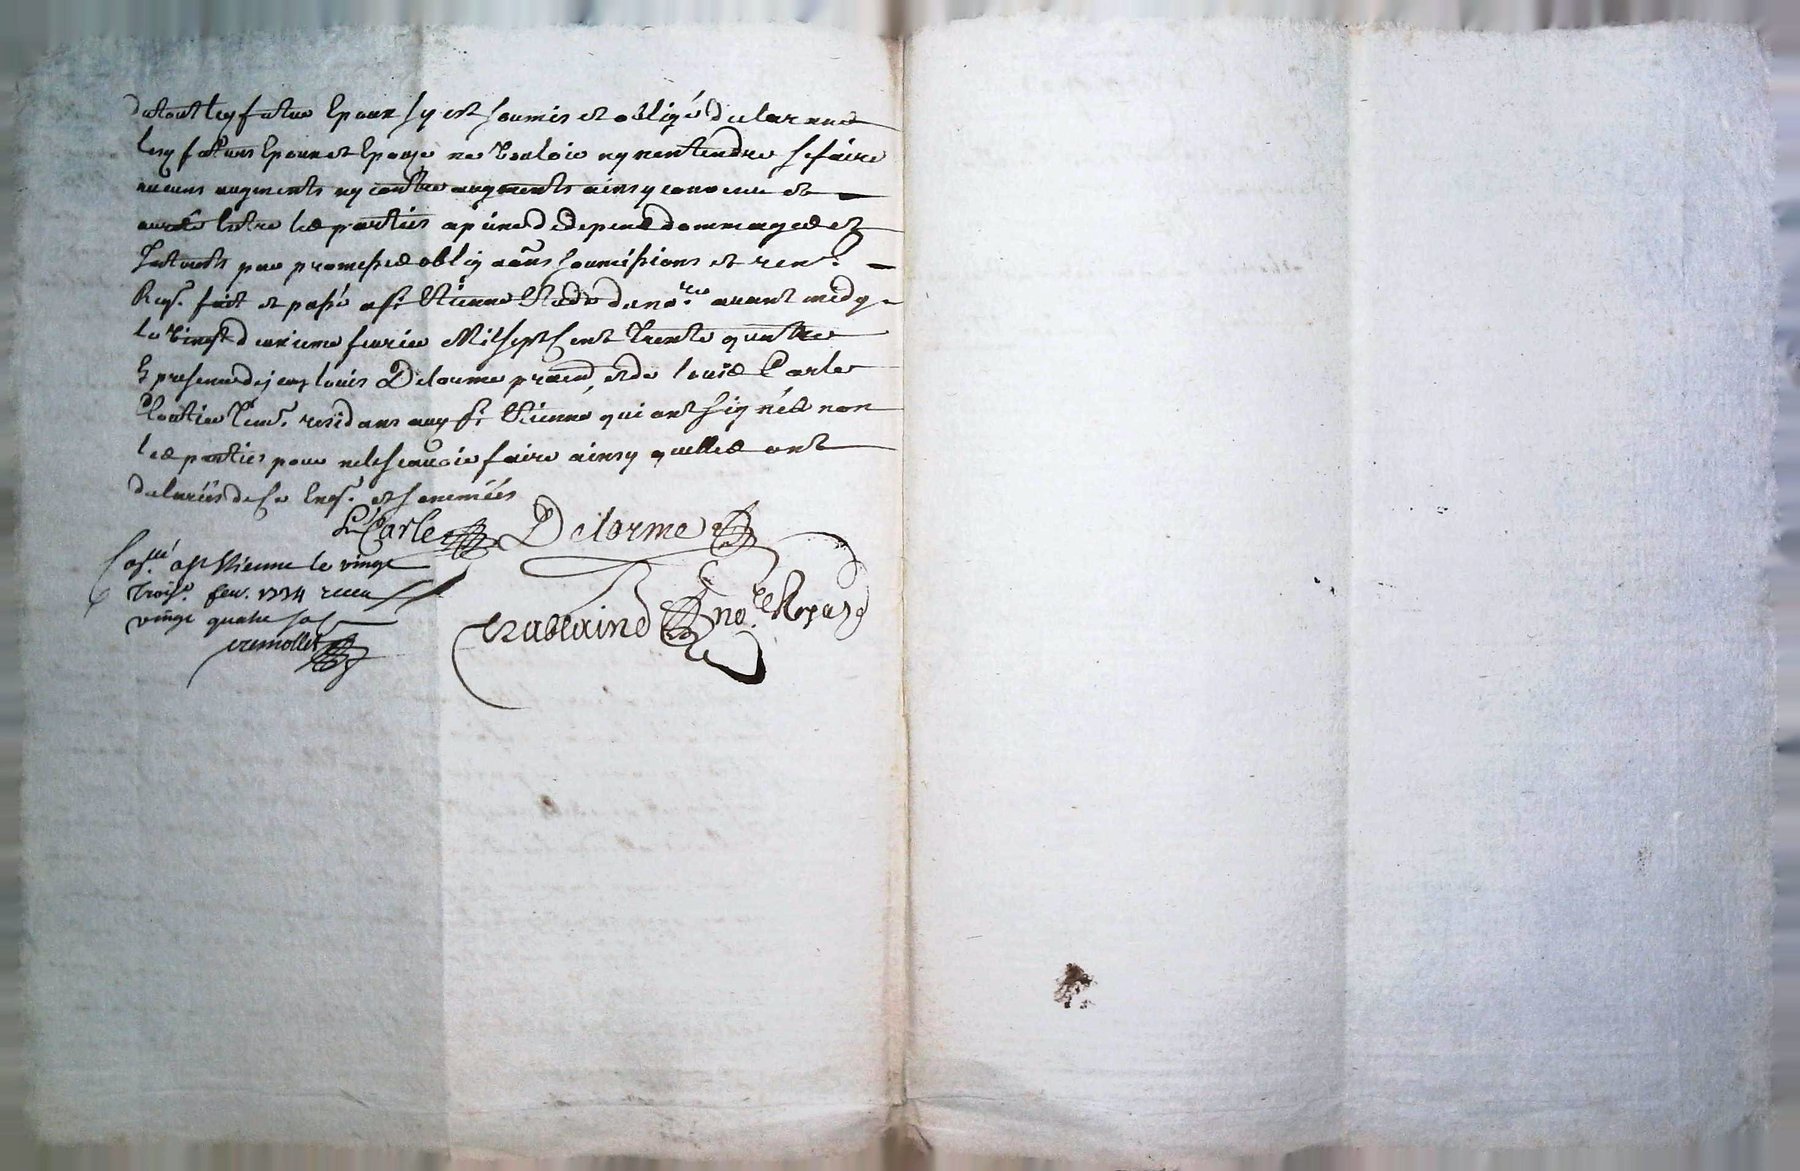 dutout ledy futur Epoux sy est soumis et obligé declarant
lesy futurs Epoux et Epouze ne Vouloir ny nentendre se faire
aucuns augments ny contre augments ainsy convenu et
entre les parties a peine de depens dommages et
Interets par promesses oblig aons soumissions et ren.
Req. fait et passé a St Etienne Etude du no.re avant midy
le Vingt deuxieme fevrier Mil sept cent Trente quatre
En presence de jean louis Delorme pratn, et de Louis Carle
residans auy St Etienne qui ont signés non
les parties pour ne le scavoir faire ainsy quelles ont
declarées de ce Enq. et sommées
L Carle Delorme
Con.llé a St Etienne le vingt
Trois.e fev. 1734 receu
vingt quatre sols
cremollet
Chabraind no.re Royal